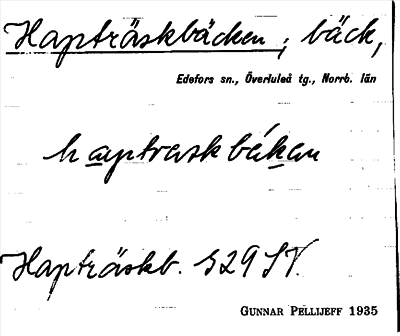 Hapträskbäcken; bäck,
Edefors sn., Överluleå tg., Norrb. län
haptraskbákan
Hapträskb. S29 SV.
GUNNAR PELLIJEFF 1935